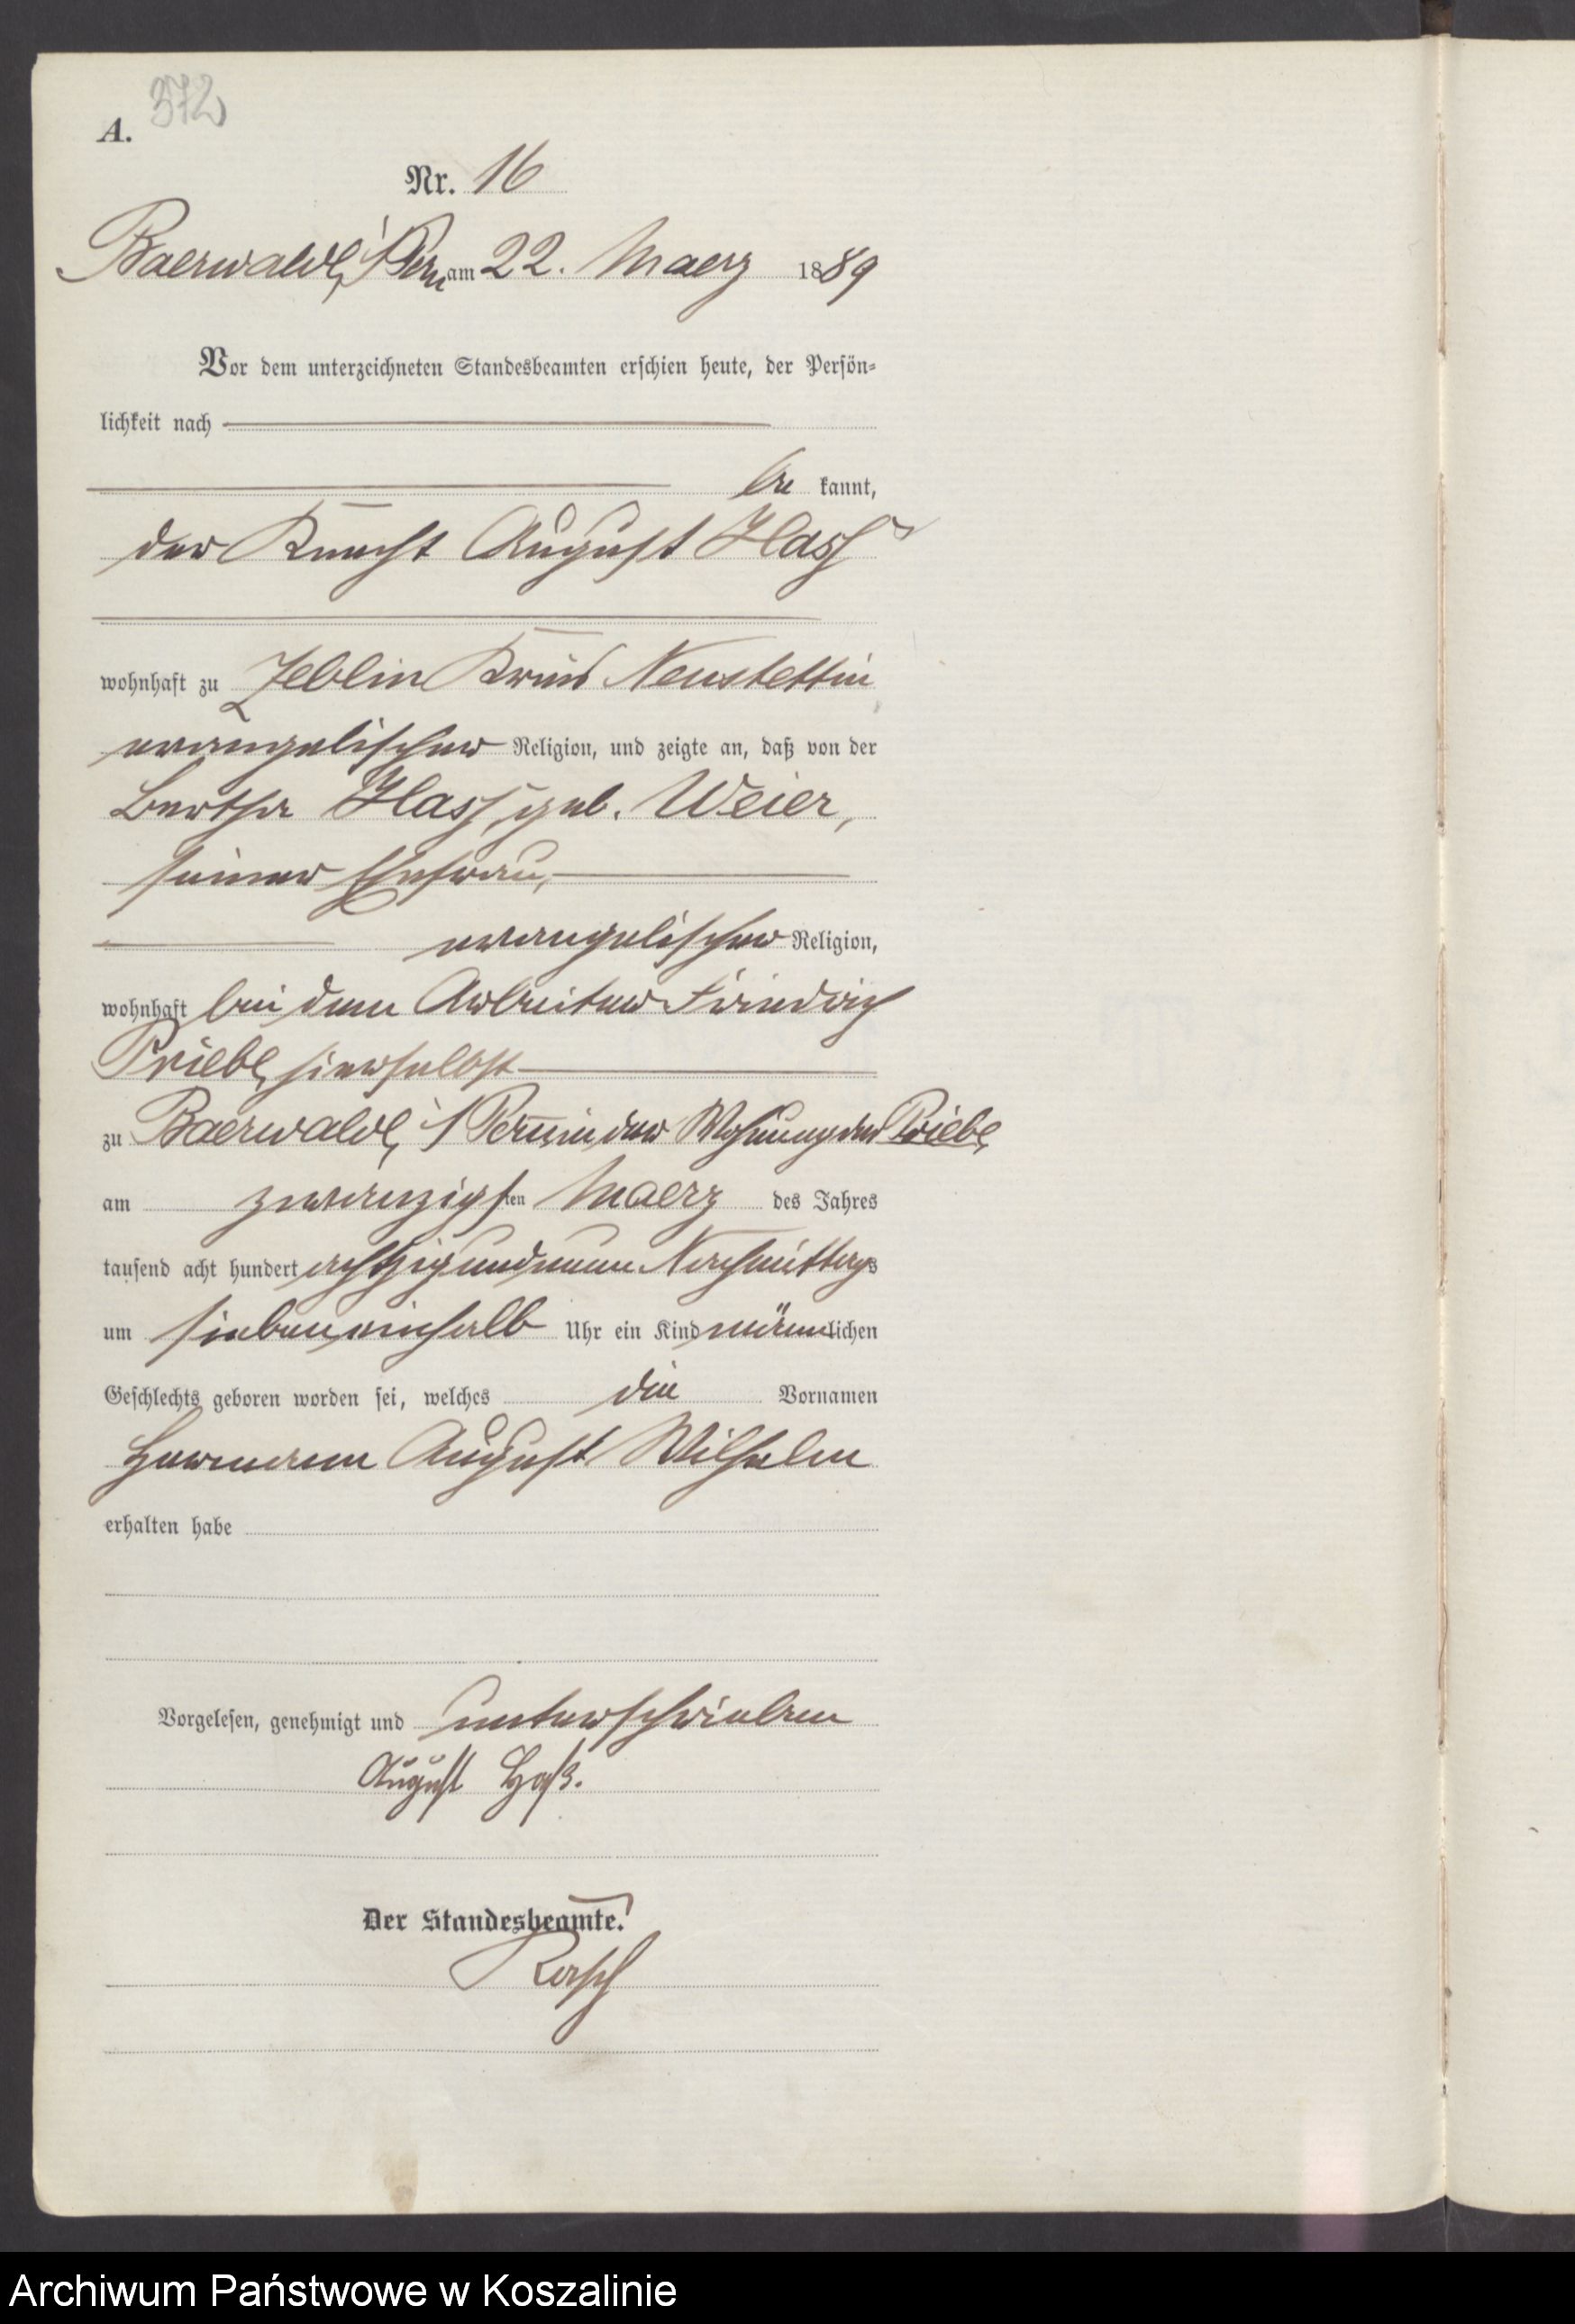 372
A.
Nr. 16
Baerwalde i/Pom am 22. Maerz 1889
Vor dem unterzeichneten Standesbeamten erschien heute, der Persön-
lichkeit nach
be kannt,
der Knecht August Hass
wohnhaft zu Zeblin Kreis Neustettin
evangelischer Religion, und zeigte an, daß von der
Bertha Hass, geb. Weier,
seiner Ehefrau,
evangelischer Religion,
wohnhaft bei dem Arbeiter Friedrich
Priebe hierselbst
zu Baerwalde i/Pom in der Wohnung des Priebe
am zwanzigsten Maerz des Jahres
tausend acht hundert achtzig und neun Nachmittags
um sieben einhalb Uhr ein Kind männlichen
Geschlechts geboren worden sei, welches die Vornamen
Hermann August Wilhelm
erhalten habe
Vorgelesen, genehmigt und unterschrieben
August Haß.
Der Standesbeamte.
Archiwum Państwowe w Koszalinie